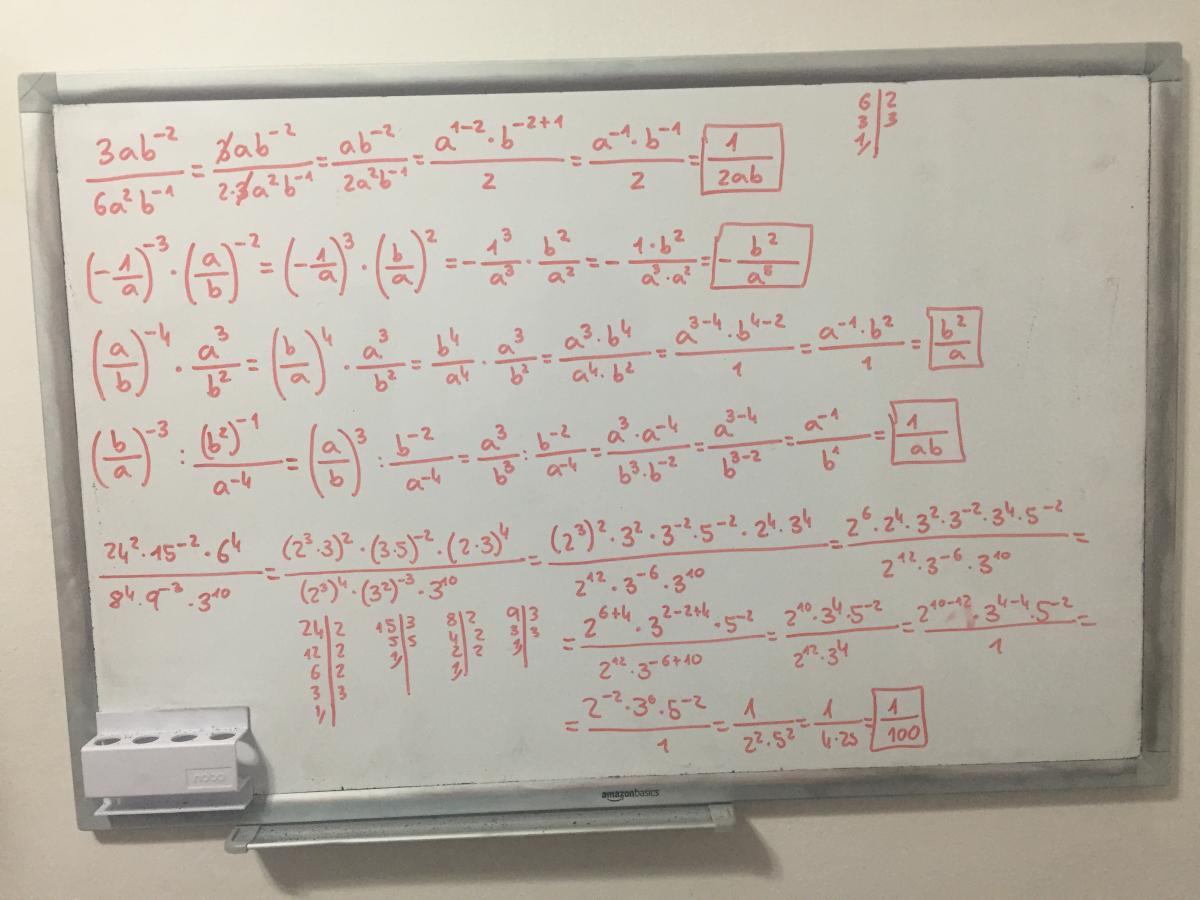 3ab⁻²/6a²b⁻¹ = 3ab⁻²/2·3a²b⁻¹ = ab⁻²/2a²b⁻¹ = a¹⁻²·b⁻²⁺¹/2 = a⁻¹·b⁻¹/2 = 1/2ab
6|2
3|3
1,|
(-1/a)⁻³·(a/b)⁻² = (-1/a)³·(b/a)² = -1³/a³·b²/a² = -1·b²/a³·a² = -b²/a⁵
(a/b)⁻⁴·a³/b² = (b/a)⁴·a³/b² = b⁴/a⁴·a³/b² = a³·b⁴/a⁴·b² = a³⁻⁴·b⁴⁻²/1 = a⁻¹·b²/1 = b²/a
(b/a)⁻³:(b²)⁻¹/a⁻⁴ = (a/b)³:b⁻²/a⁻⁴ = a³/b³:b⁻²/a⁻⁴ = a³·a⁻⁴/b³·b⁻² = a³⁻⁴/b³⁻² = a⁻¹/b¹ = 1/ab
24²·15⁻²·6⁴/8⁴·9⁻³·3¹⁰ = (2³·3)²·(3·5)⁻²·(2·3)⁴/(2³)⁴·(3²)⁻³·3¹⁰ = (2³)²·3²·3⁻²·5⁻²·2⁴·3⁴/2¹²·3⁻⁶·3¹⁰ = 2⁶·2⁴·3²·3⁻²·3⁴·5⁻²/2¹²·3⁻⁶·3¹⁰ =
24|2 15|3 8|2 9|3
12|2 5|5 4|2 3|3
6|2 1,| 2|2 1,|
3|3 1,|
1,|
= 2⁶⁺⁴·3²⁻²⁺⁴·5⁻²/2¹²·3⁻⁶⁺¹⁰ = 2¹⁰·3⁴·5⁻²/2¹²·3⁴ = 2¹⁰⁻¹²·3⁴⁻⁴·5⁻²/1 =
= 2⁻²·3⁰·5⁻²/1 = 1/2²·5² = 1/4·25 = 1/100
nobo
amazonbasics